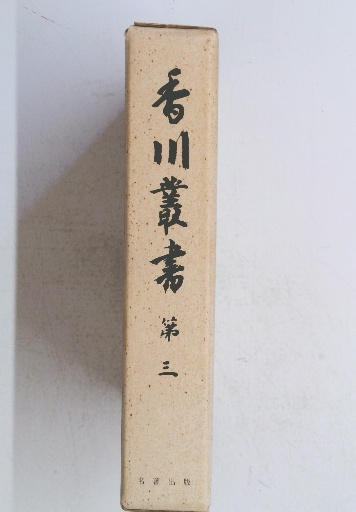 香川叢書
第三
名著出版